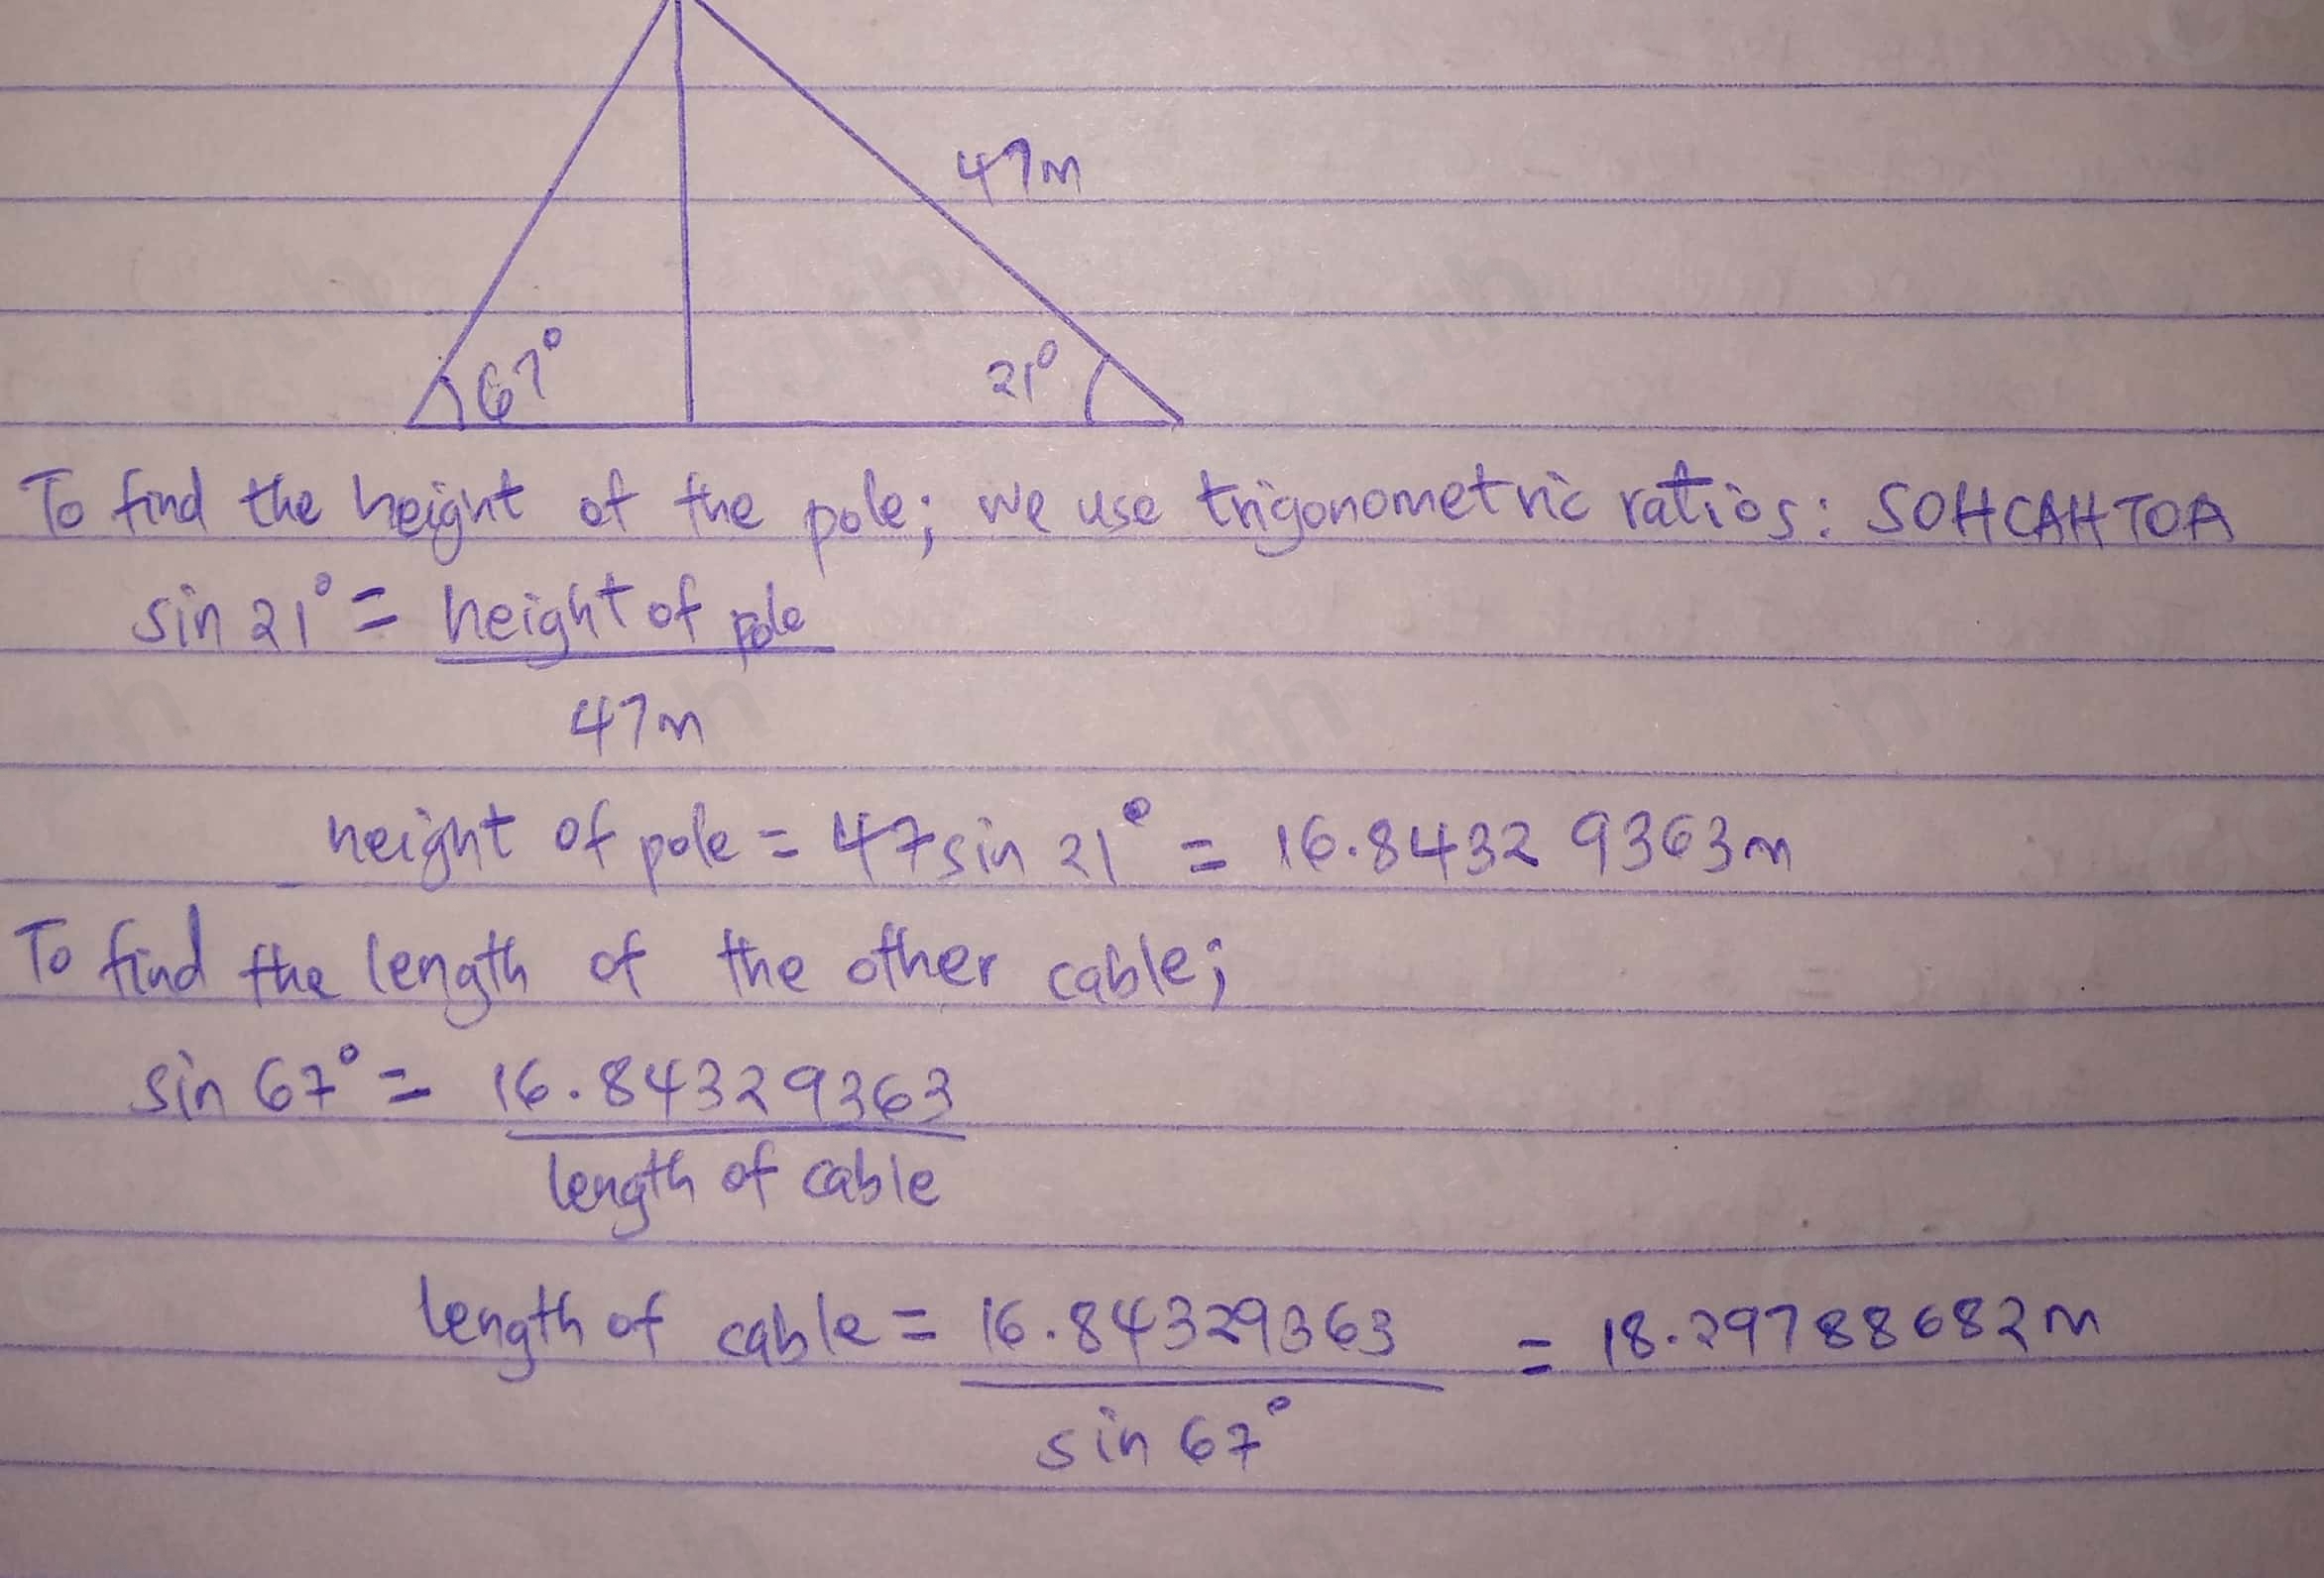 47m
67°
21°
To find the height of the pole; we use trigonometric ratios: SOHCAHTOA
sin 21° = height of pole
47m
height of pole = 47 sin 21° = 16.84329363m
To find the length of the other cable;
sin 67° = 16.84329363
length of cable
length of cable = 16.84329363 = 18.29788682m
sin 67°